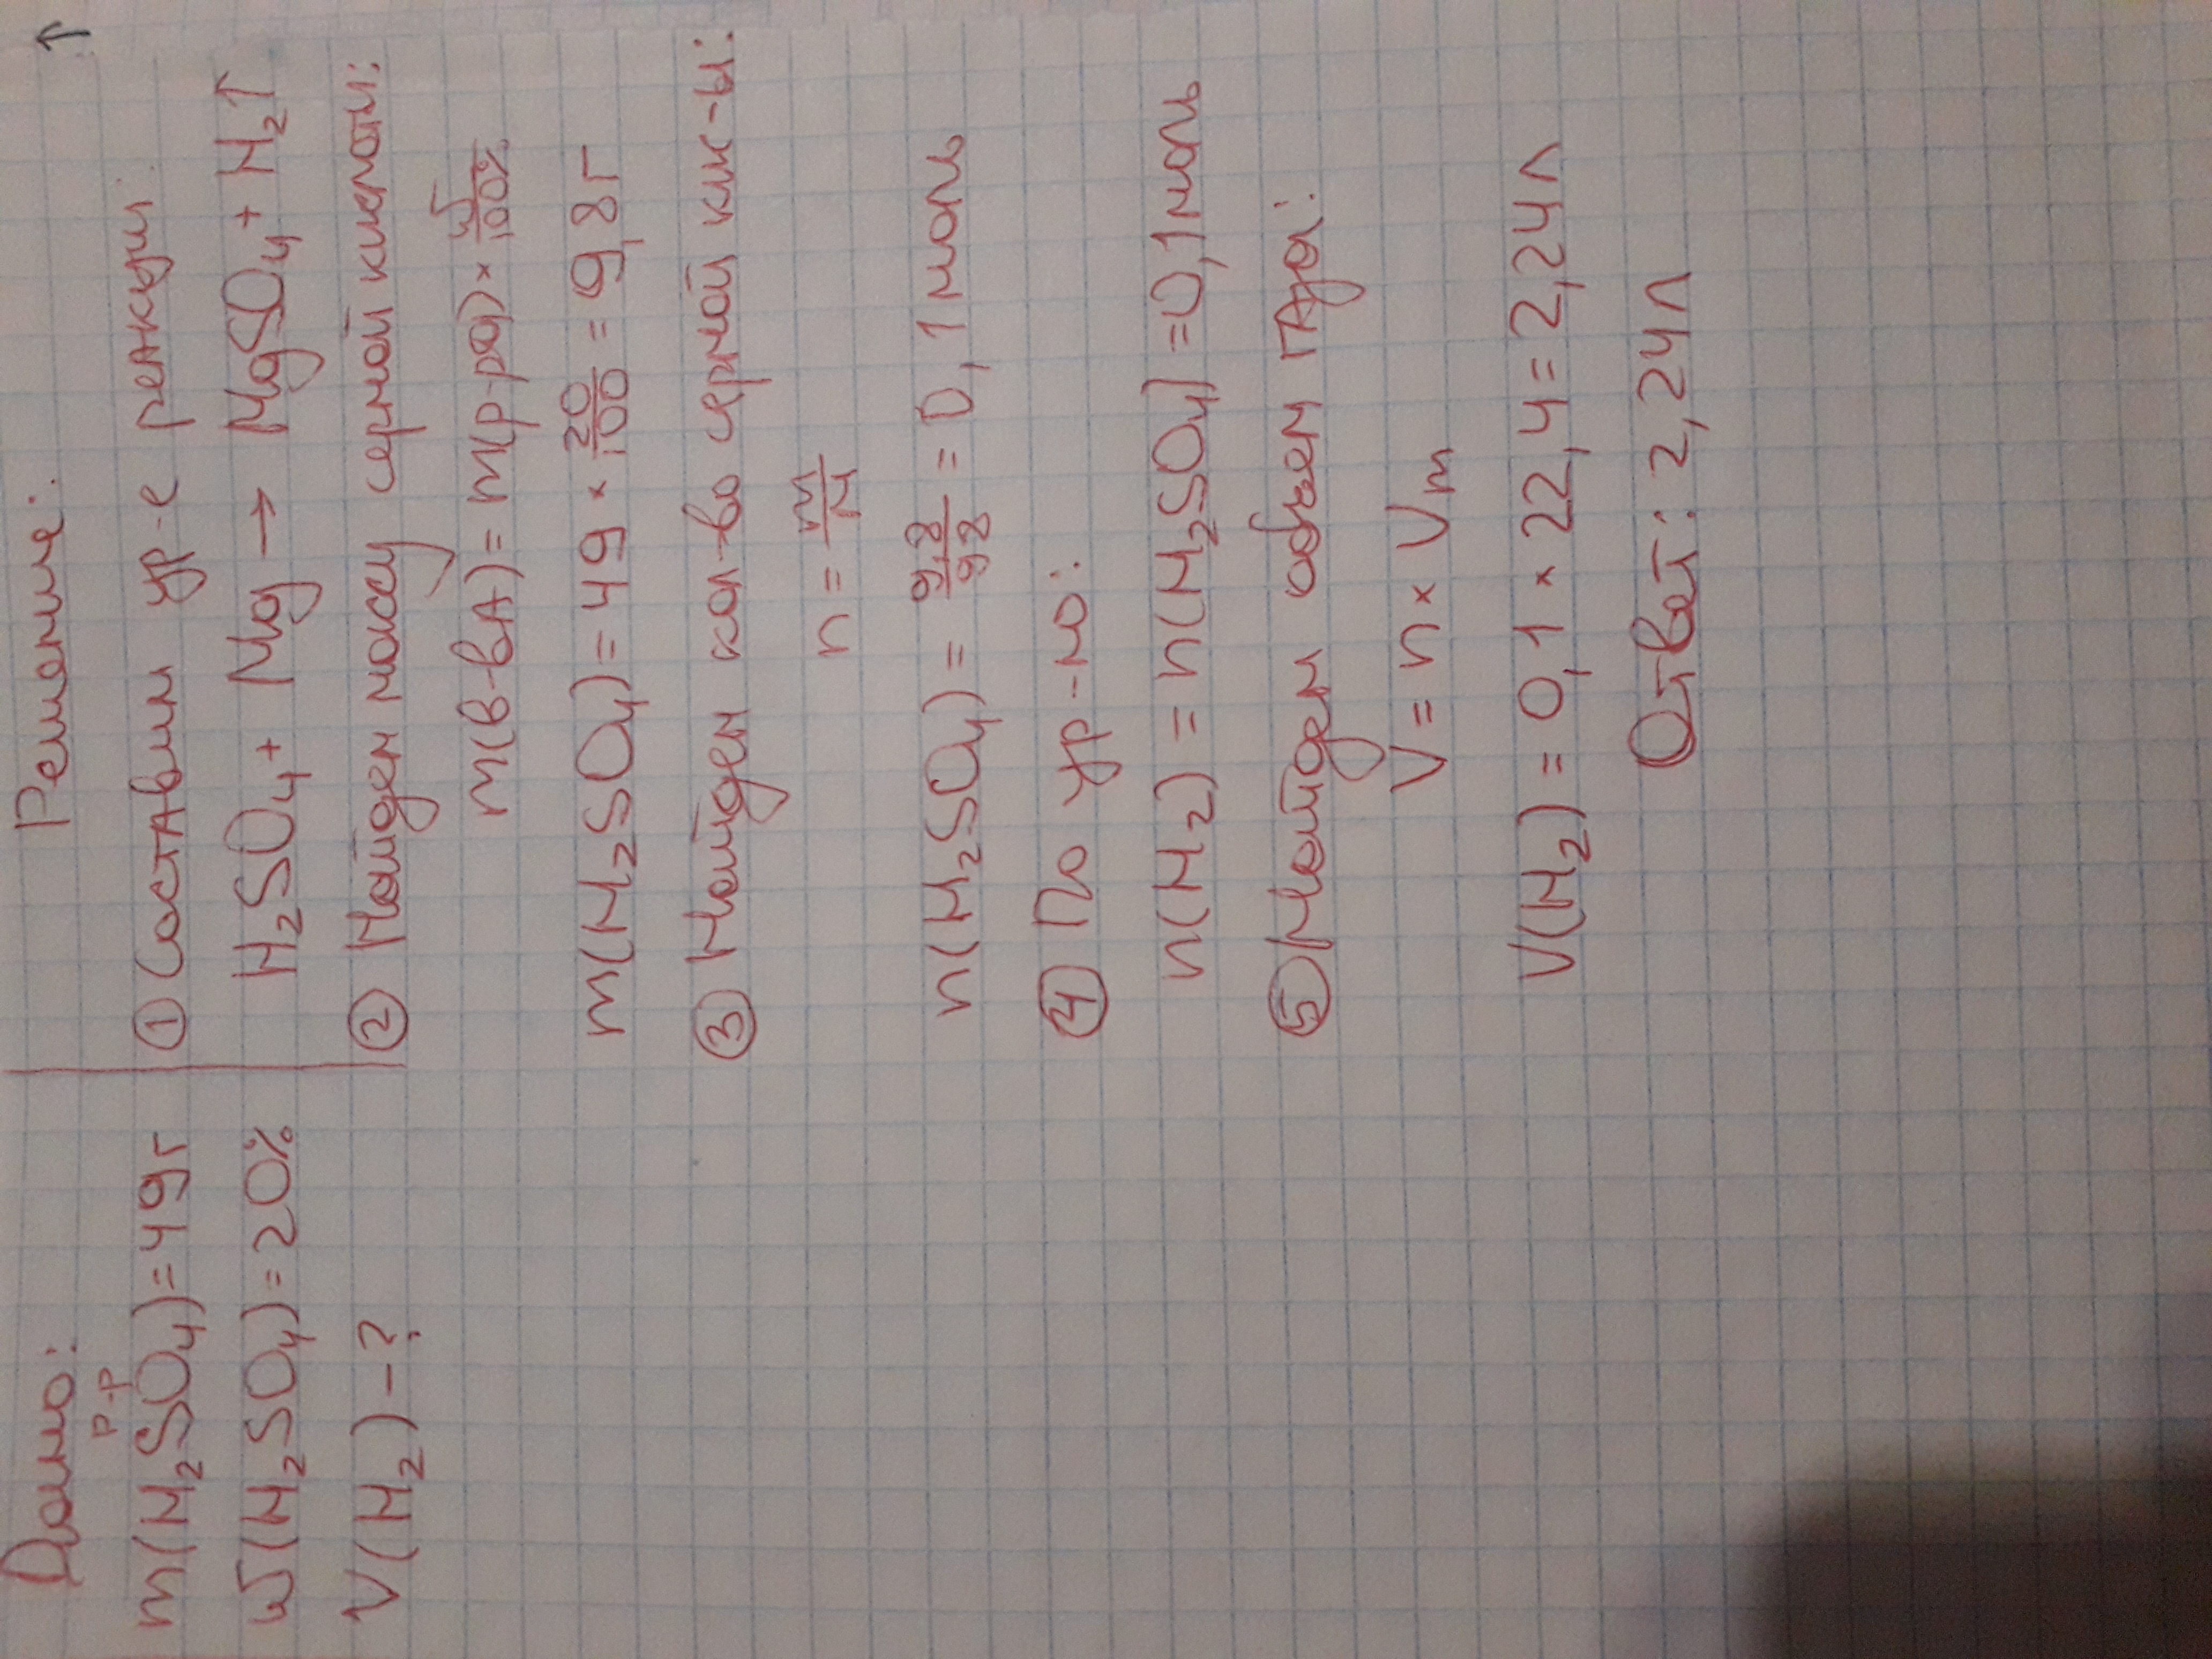 Дано:
р-р
m(H₂SO₄)=49г
ω(H₂SO₄)=20%
V(H₂)-?
Решение:
① Составим ур-е реакции:
H₂SO₄+ Mg → MgSO₄+ H₂↑
② Найдем массу серной кислоты:
m(в-вА)= m(р-ра) × ω/100%
m(H₂SO₄)= 49 × 20/100 = 9,8г
③ Найдем кол-во серной кис-ы:
n = m/M
n(H₂SO₄) = 9,8/98 = 0,1 моль
④ По ур-ю:
n(H₂) = n(H₂SO₄) =0,1моль
⑤ Найдем объем гАза:
V = n × Vm
V(H₂) = 0,1 × 22,4 = 2,24л
Ответ: 2,24л
↑